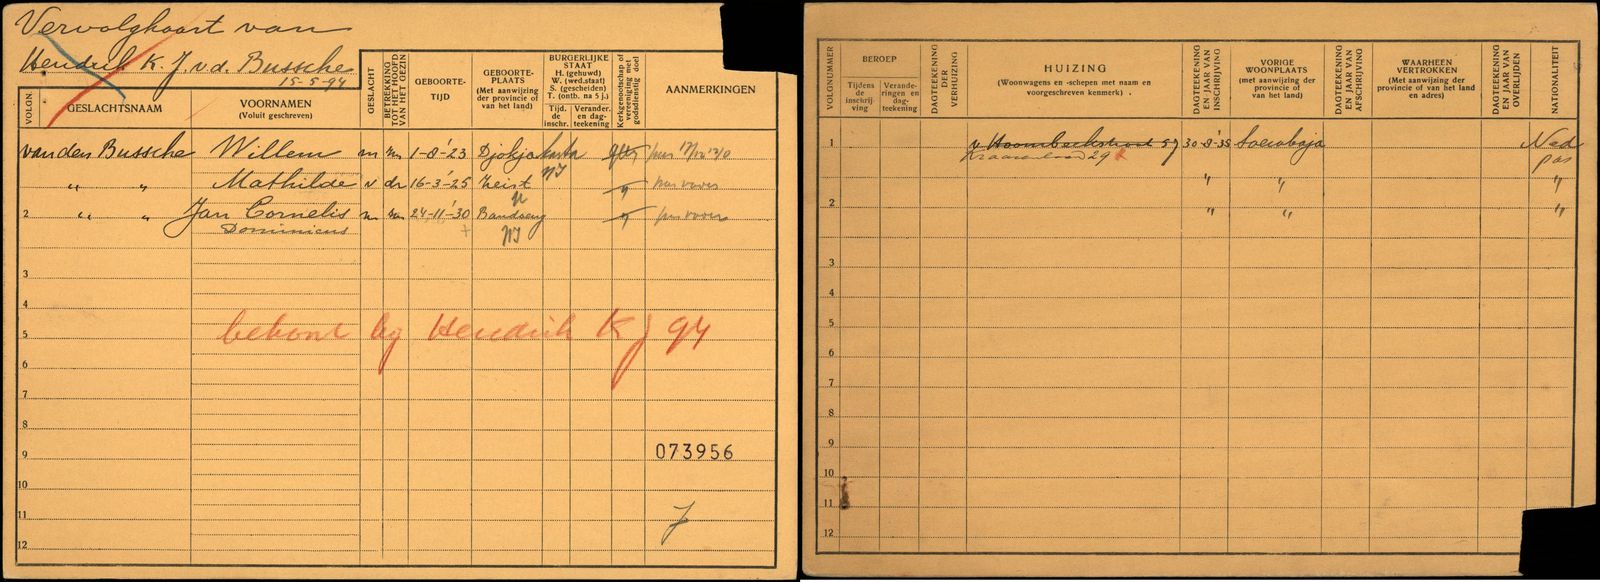 Vervolgkaart van
Hendrik K. J. v. d. Bussche
15-5-94
VOLGN.
GESLACHTSNAAM
VOORNAMEN
(Voluit geschreven)
GESLACHT
BETREKKING TOT HET HOOFD VAN HET GEZIN
GEBOORTE-
TIJD
GEBOORTE-
PLAATS
(Met aanwijzing
der provincie of
van het land)
BURGERLIJKE
STAAT
H. (gehuwd)
W. (wed.staat)
S. (gescheiden)
T. (ontb. na 5 j.)
Tijd.
de
inschr.
Verander.
en dag-
teekening
Kerkgenootschap of
vereeniging met
godsdienstig doel
AANMERKINGEN
van den Bussche Willem m zn 1-8-'23 Djokjakarta
NI
" " Mathilde v dr 16-3-'25 Zeist
2 " " Jan Cornelis m zn 24-11-'30 Bandoeng
Dominicus
NI
3
4
5
bekom bij Hendrik K J 94
6
7
8
9
073956
10
11
12
VOLGNUMMER
BEROEP
Tijdens
de
inschrij-
ving
Verande-
ringen en
dag-
teekening
DAGTEEKENING
DER
VERHUIZING
HUIZING
(Woonwagens en -schepen met naam en
voorgeschreven kenmerk) .
DAGTEEKENING
EN JAAR VAN
INSCHRIJVING
VORIGE
WOONPLAATS
(met aanwijzing der
provincie of
van het land)
DAGTEEKENING
EN JAAR VAN
AFSCHRIJVING
WAARHEEN
VERTROKKEN
(Met aanwijzing der
provincie of van het land
en adres)
DAGTEEKENING
EN JAAR VAN
OVERLIJDEN
NATIONALITEIT
1 v. Hoornbeekstraat 57 30-8-'35 Soerabaja Ned
29 pas
" " "
2 " " "
3
4
5
6
7
8
9
10
11
12